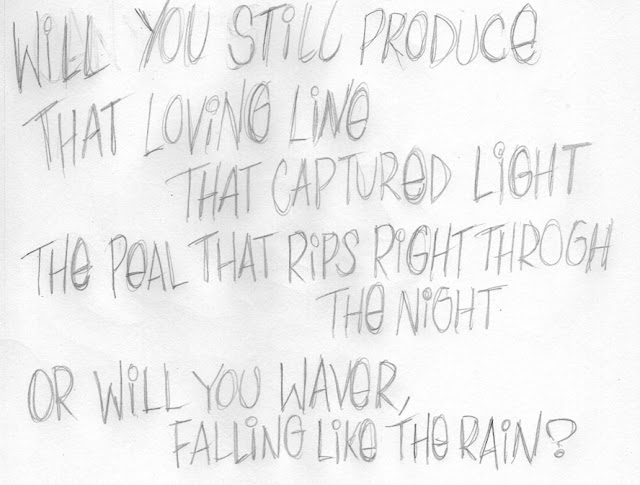 WiLL YOU STiLL PRODUCe
THAT LOViNG LiNe
THAT CAPTUReD LiGHT
THe PeAL THAT RiPS RiGHT THROGH
THe NiGHT.
OR WiLL YOU WAVeR,
FALLiNG LiKe THe RAiN?